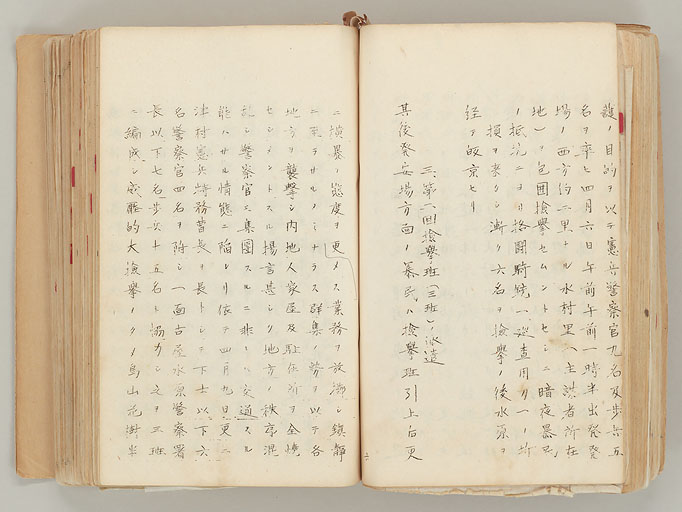 護ノ目的ヲ以テ憲兵警察官九名及歩兵五
名ヲ率ヒ四月六日午前午前一時半出発発
場ノ西方約二里ナル水村里(主謀者所在
地)ヲ包囲検挙セムトセシニ暗夜暴民
ノ抵抗ニヨリ格闘騎銃一、巡査用刀一ノ折
損ヲ来タシ漸ク六名ヲ検挙ノ後水原ヲ
経テ帰京セリ
三、第一回検挙班(三班)ノ派遣
其後発安場方面ノ暴民ハ検挙班引上后更
ニ横暴ノ態度ヲ更メス業務ヲ放擲シ鎮静
ニ至ラサルノミナラス群集ノ勢ヲ以テ各
地方ヲ襲撃シ内地人家屋及駐在所ヲ全焼
セシメントスル揚言甚シク地方ノ秩序混
乱シ警察官モ集団スルニ非レハ交通スル
能ハサル情態ニ陥レリ依テ四月九日更ニ
津村憲兵特務曹長ヲ長トシテ下士以下六
名警察官四名ヲ附シ一面古屋水原警察署
長以下七名歩兵十五名ト協力シ之ヲ三班
ニ編成シ威圧的大検挙ノタメ烏山花樹半